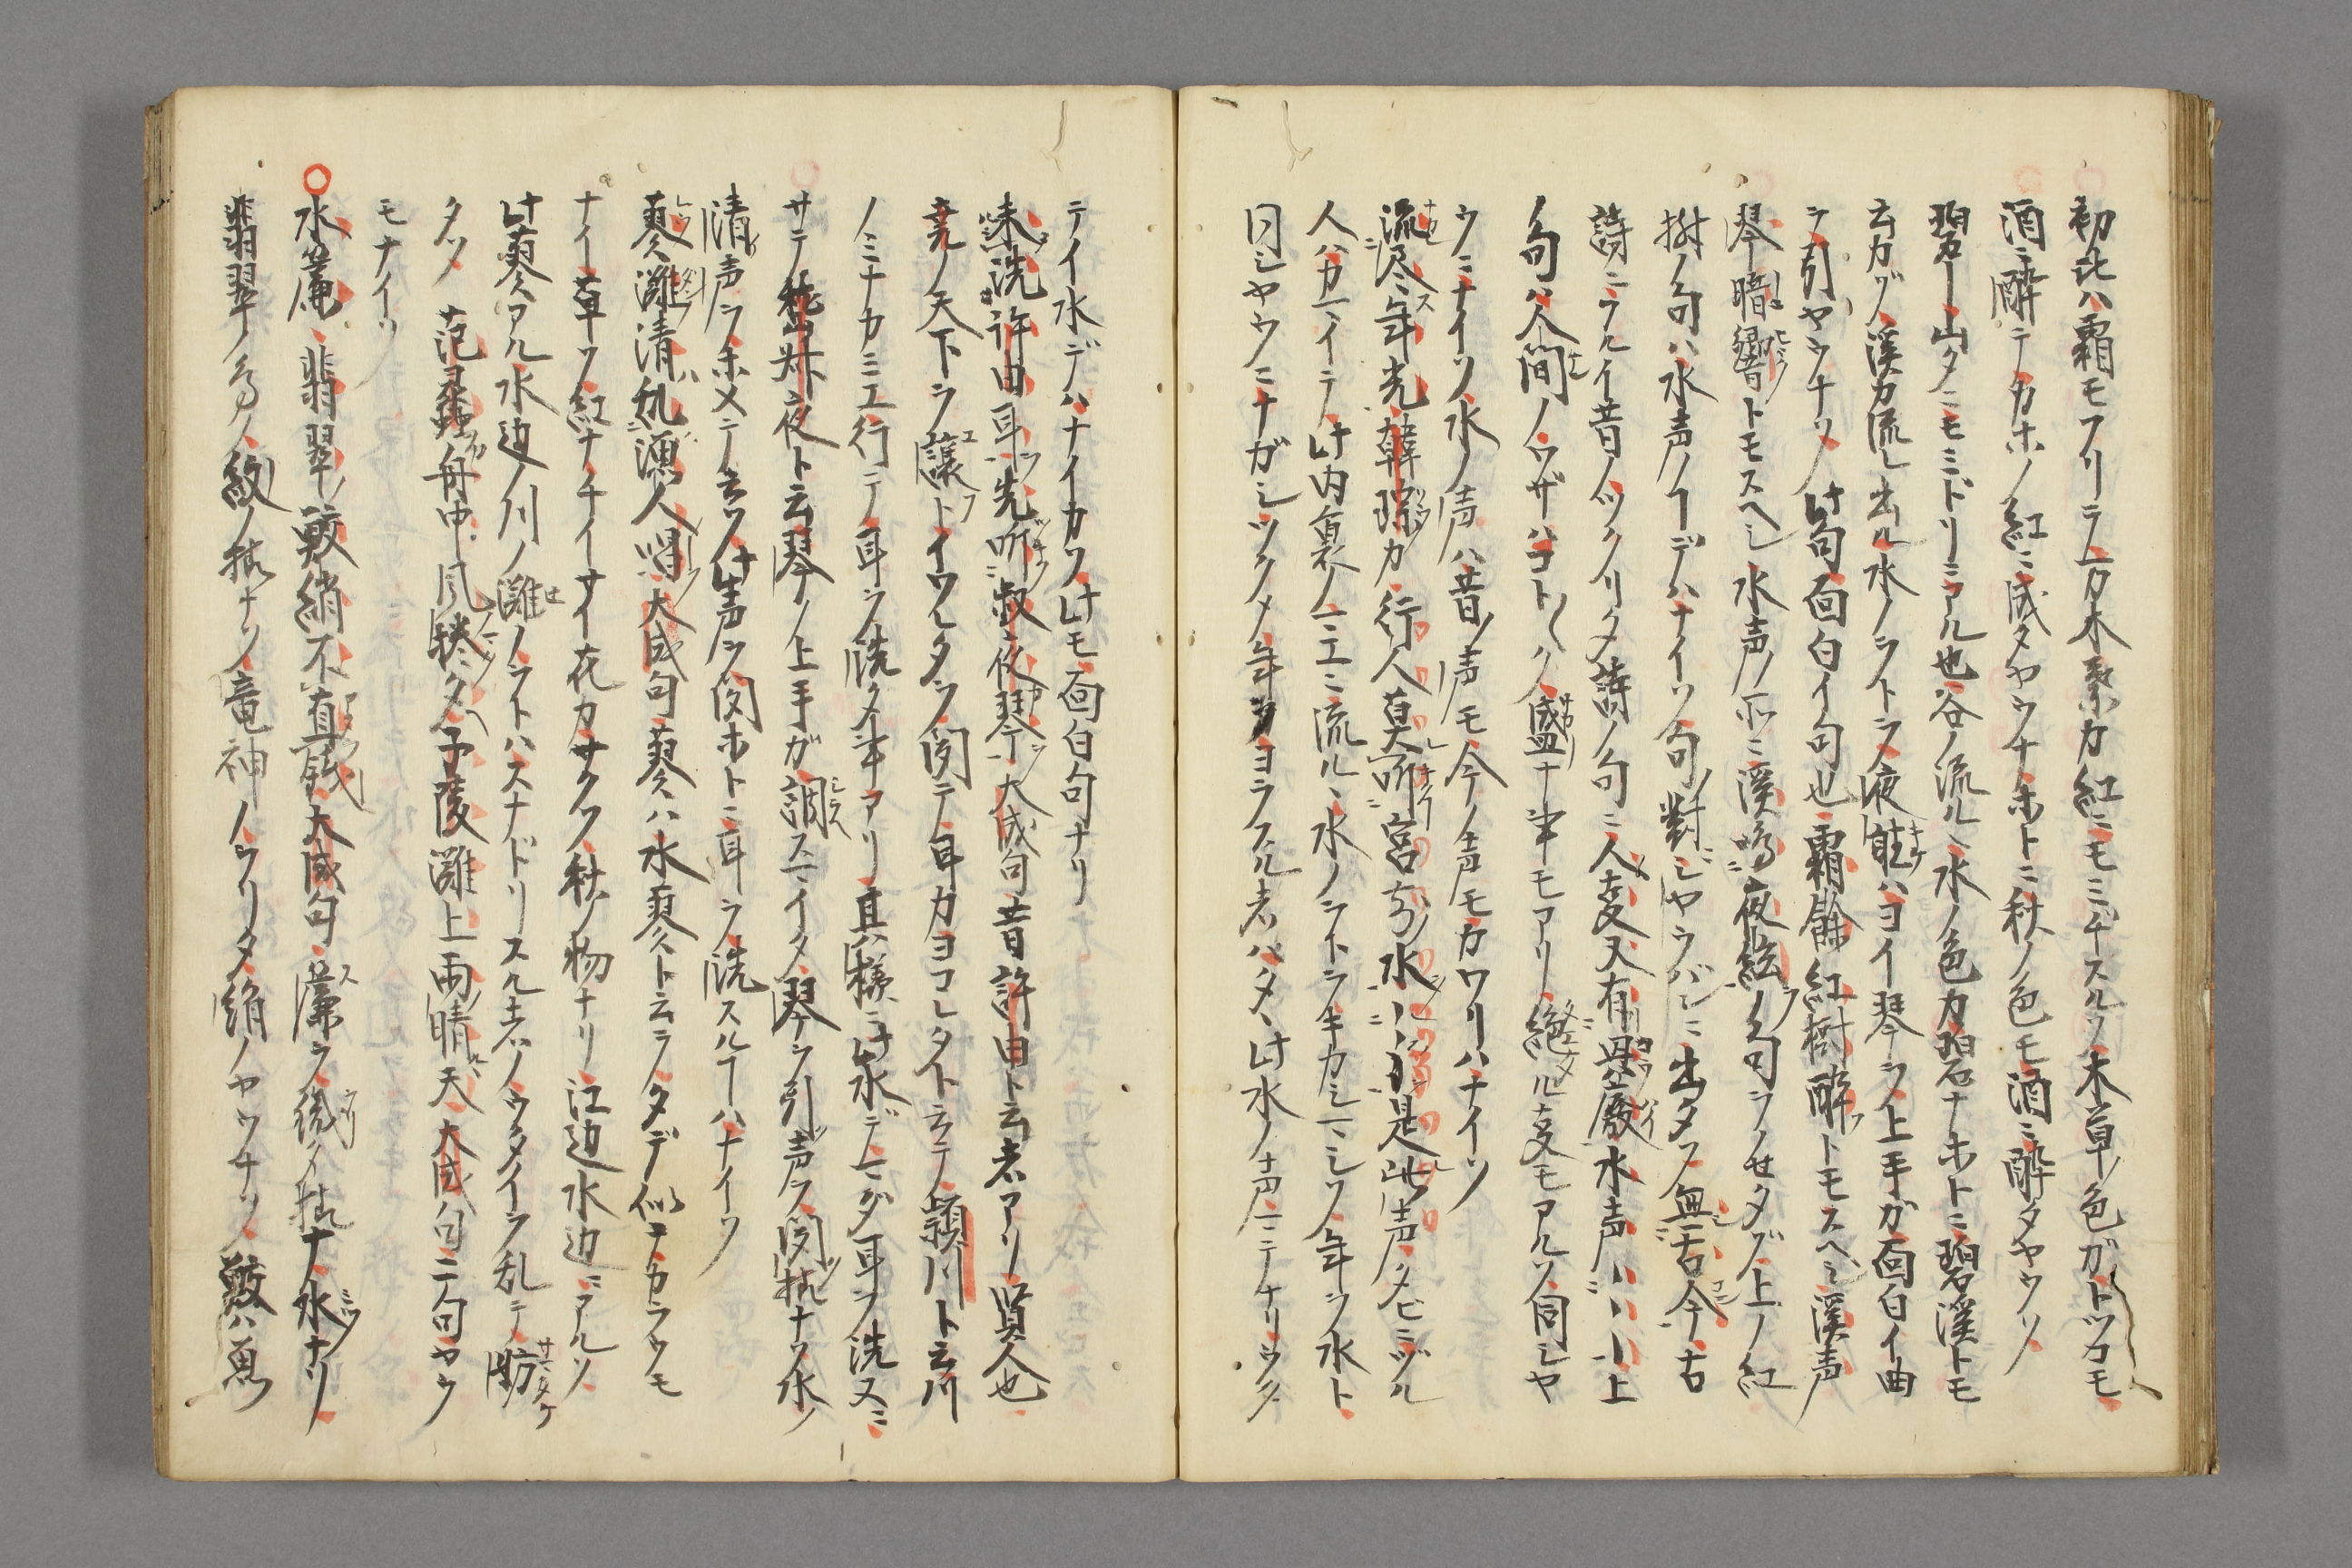 初比ハ霜モフリテ万木葉カ紅ニモミヂスルソ木草ノ色ガトツコモ
酒ニ醉テカホノ紅ニ成タヤウナホトニ秋ノ色モ酒ニ醉タヤウソ
碧ー山タニモミドリニアル也谷ノ流ルヽ水ノ色カ碧ナホトニ碧溪トモ
云カヅ溪カ流レ出ル水ノヲトヲ夜 ハヨイ琴ヲ上手ガ面白イ曲
ヲ引ヤウナソ 此句面白イ句也霜餘紅樹醉トモスヘシ溪声
琴暗響トモスヘシ水声ノ所ニ溪鳴夜絃ノ句ヲノせタゾ上ノ紅
樹ノ句ハ水声ノ デハナイソ句ノ對ニシヤウバシニ出タソ無古今古
詩ニフルイ昔ノツクリタ詩ノ句ニ人変又有 廢水声 上
ノ句ハ人間ノワザハコト〱ク盛ナ半モアリ絶ル変モアルソ同シヤ
ウニナイソ水ノ声ハ昔ノ声モ今ノ声モカワリハナイソ
流尽年光韓琮カ行人莫听宮前水 是此声タビミヅル
人ハカマイテ此内裏ノマエニ流ルヽ水ノヲトヲキカシマシソ年ヲ水ト
同シヤウニナガシツクメ年ヲヨラスル者ハタヽ此水ノ声ニテケリウタ
テイ水デハナイカソ此モ面白句ナリ
来洗許由耳先听叔夜琴大成句昔許由ト云者アリ賢人也
尭ノ天下ヲ譲トイワルタソ聞テ耳カヨコレタト云テ頴川ト云川
ノミナカミエ行テ耳ヲ洗タ半アリ其様ニ此水デマダ耳ヲ洗又ニ
サテ嵆叔夜ト云琴ノ上手ガ調スマイタ琴ヲ引声ヲ聞抗ナソ水ノ
清声ヲホメテ云ソ此声ヲ聞ホトニ耳ヲ洗スル ハナイソ
蓼灘清乱漁人唱大成句蓼ハ水蓼ト云テタデ似テカラウモ
ナイ草ソ紅ナチイサイ花カサクソ秋ノ物ナリ江辺水辺ニアルソ
此蓼アル水辺ノ川ノ灘ノヲトハスナドリスル者ノウタイヲ乱テ妨
タソ 范蠡舟中風 夕予陵灘上雨晴天大成句ニ句ヤウ
モナイソ
〇水簾 翡翠鮫綃不直銭大成句 簾ヲ 夕 ナ水ナリ
翡翠ノ鳥ノ紋ノ ナソ竜神ノヲリタ絹ノヤウナソ鮫ハ魚